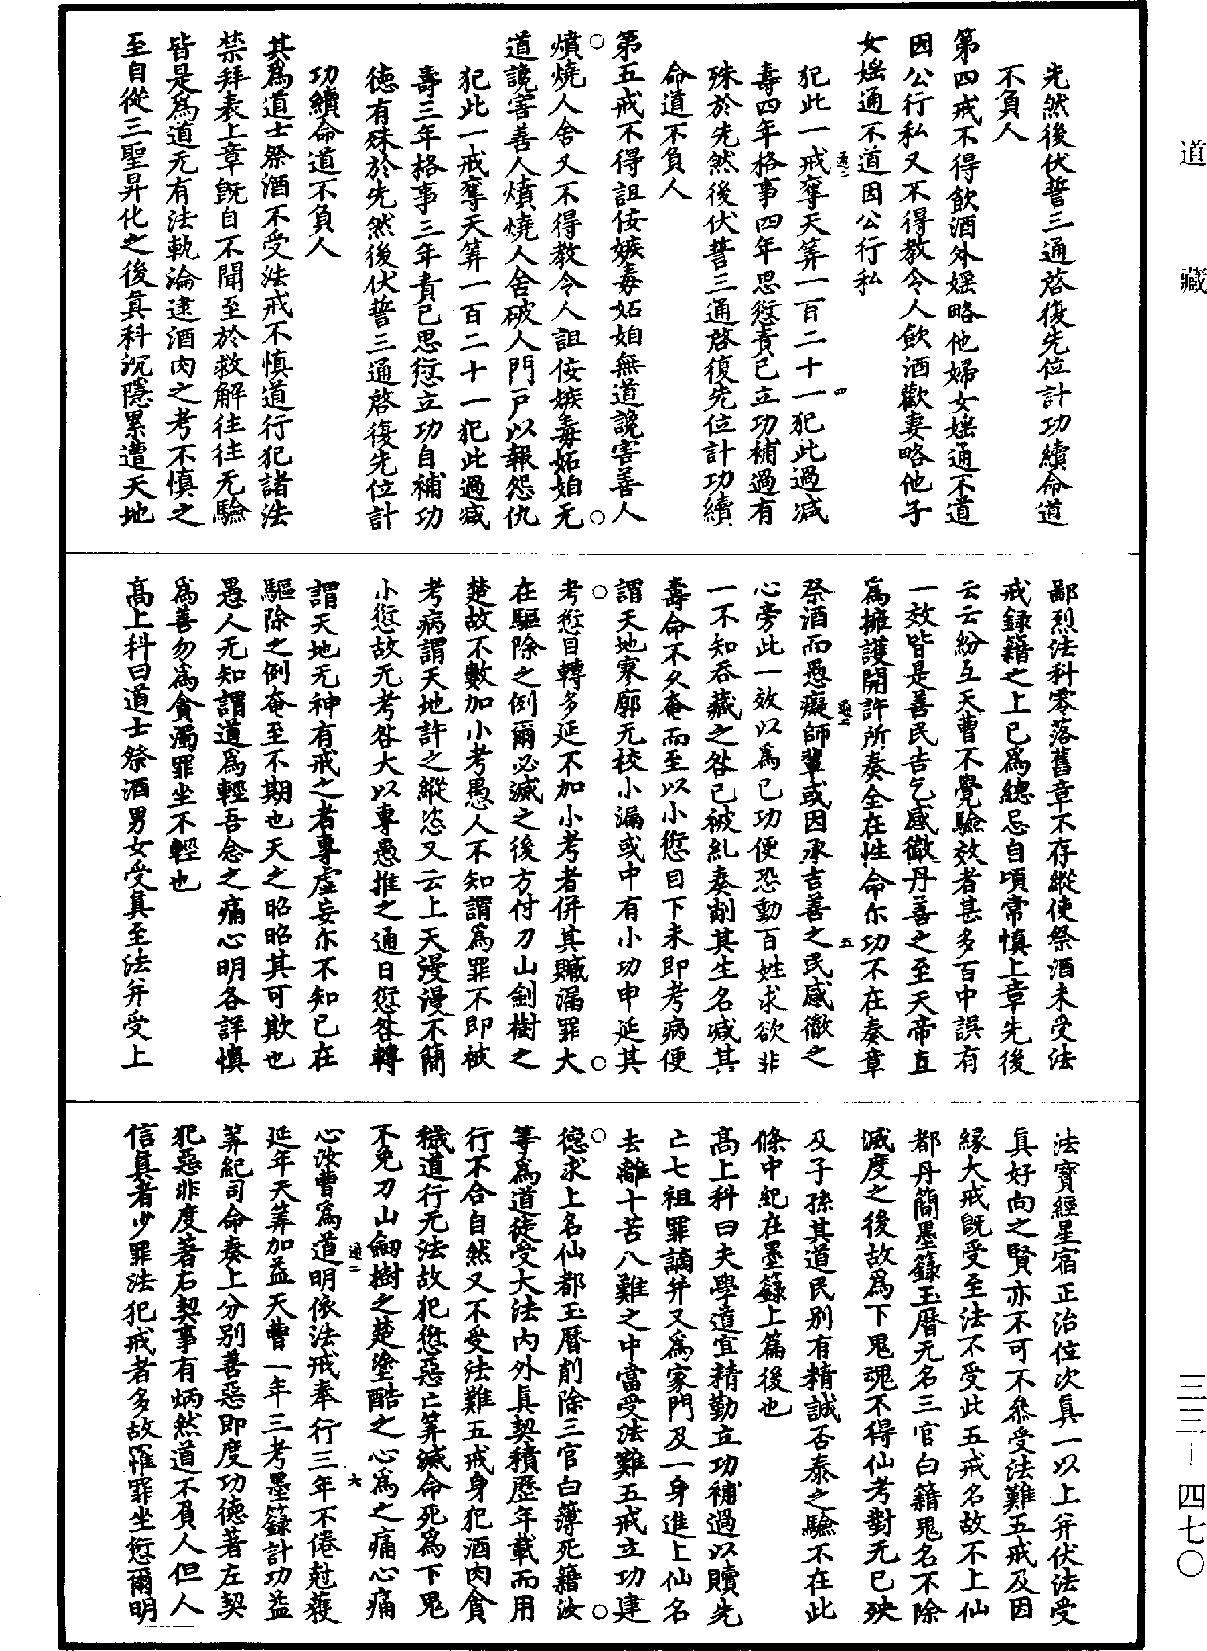 道藏
先然後伏誓三通啓復先位計功續命道
不負人
第四戒不得飲酒外婬略他婦女婬通不道
因公行私又不得教令人飲酒歡妻略他子
女婬通不道因公行私
犯此一戒奪天筭一百二十一犯此過減
壽四年格事四年思愆責已立功補過有
殊於先然後伏誓三通啓復先位計功續
命道不負人
第五戒不得詛佞嫉毒妬姤無道讒害善人
燌燒人舍又不得教令人詛佞嫉毒妬姤无
道讒害善人燌燒人舍破人門戸以報怨仇
犯此一戒奪天筭一百二十一犯此過減
壽三年格事三年責已思愆立功自補功
德有殊於先然後伏誓三通啓復先位計
功續命道不負人
其為道士祭酒不受法戒不慎道行犯諸法
禁拜表上章既自不聞至於救解往往无驗
皆是為道无有法軌淪逮酒肉之考不慎之
至自從三聖昇化之後真科沉隱累遭天地
鄙烈法科零落舊章不存縱使祭酒未受法
戒録籍之上已為總忌自頃常慎上章先後
云云紛互天曹不覺驗效者甚多百中誤有
一效皆是善民吉乞感徹丹善之至天帝直
為擁護開許所奏全在性命尓功不在奏章
祭酒而愚癡師輩或因承吉善之民感徹之
心旁此一效以為已功便恐動百姓求欲非
一不知吞藏之咎已被糺奏剬其生名減其
壽命不久奄而至以小愆目下未即考病便
謂天地寥廓无校小漏或中有小功申延其
考愆目轉多延不加小考者併其贓漏罪大
在驅除之例爾必滅之後方付刀山劍樹之
楚故不數加小考愚人不知謂為罪不即被
考病謂天地許之縱恣又云上天漫漫不簡
小愆故无考咎大以專愚推之通日愆咎轉
謂天地无神有戒之者專虛妄尓不知已在
驅除之例奄至不期也天之昭昭其可欺也
愚人无知謂道為輕吾念之痛心明各詳慎
為善勿為貪濁罪坐不輕也
高上科曰道士祭酒男女受真至法并受上
法寶經星宿正治位次真一以上并伏法受
真好尚之賢亦不可不叅受法難五戒及因
緣大戒既受至法不受此五戒名故不上仙
都丹簡墨籙玉曆无名三官白籍鬼名不除
滅度之後故為下鬼魂不得仙考對无已殃
及子孫其道民別有精誠否泰之驗不在此
條中紀在墨籙上篇後也
高上科曰夫學道宜精勤立功補過以贖先
亡七祖罪謫并又為家門及一身進上仙名
去離十苦八難之中當受法難五戒立功建
德求上名仙都玉曆削除三官白簿死籍汝
等為道徒受大法内外真契積歷年載而用
行不合自然又不受法難五戒身犯酒肉貪
穢道行无法故犯愆惡亡筭減命死為下鬼
不免刀山劒樹之楚塗酷之心為之痛心痛
心汝曹為道明依法戒奉行三年不倦尅獲
延年天筭加益天曹一年三考墨籙計功益
筭紀司命奏上分別善惡即度功德著左契
犯惡非度著右契事有炳然道不負人但人
信真者少罪法犯戒者多故罹罪坐愆爾明
三三—四七〇